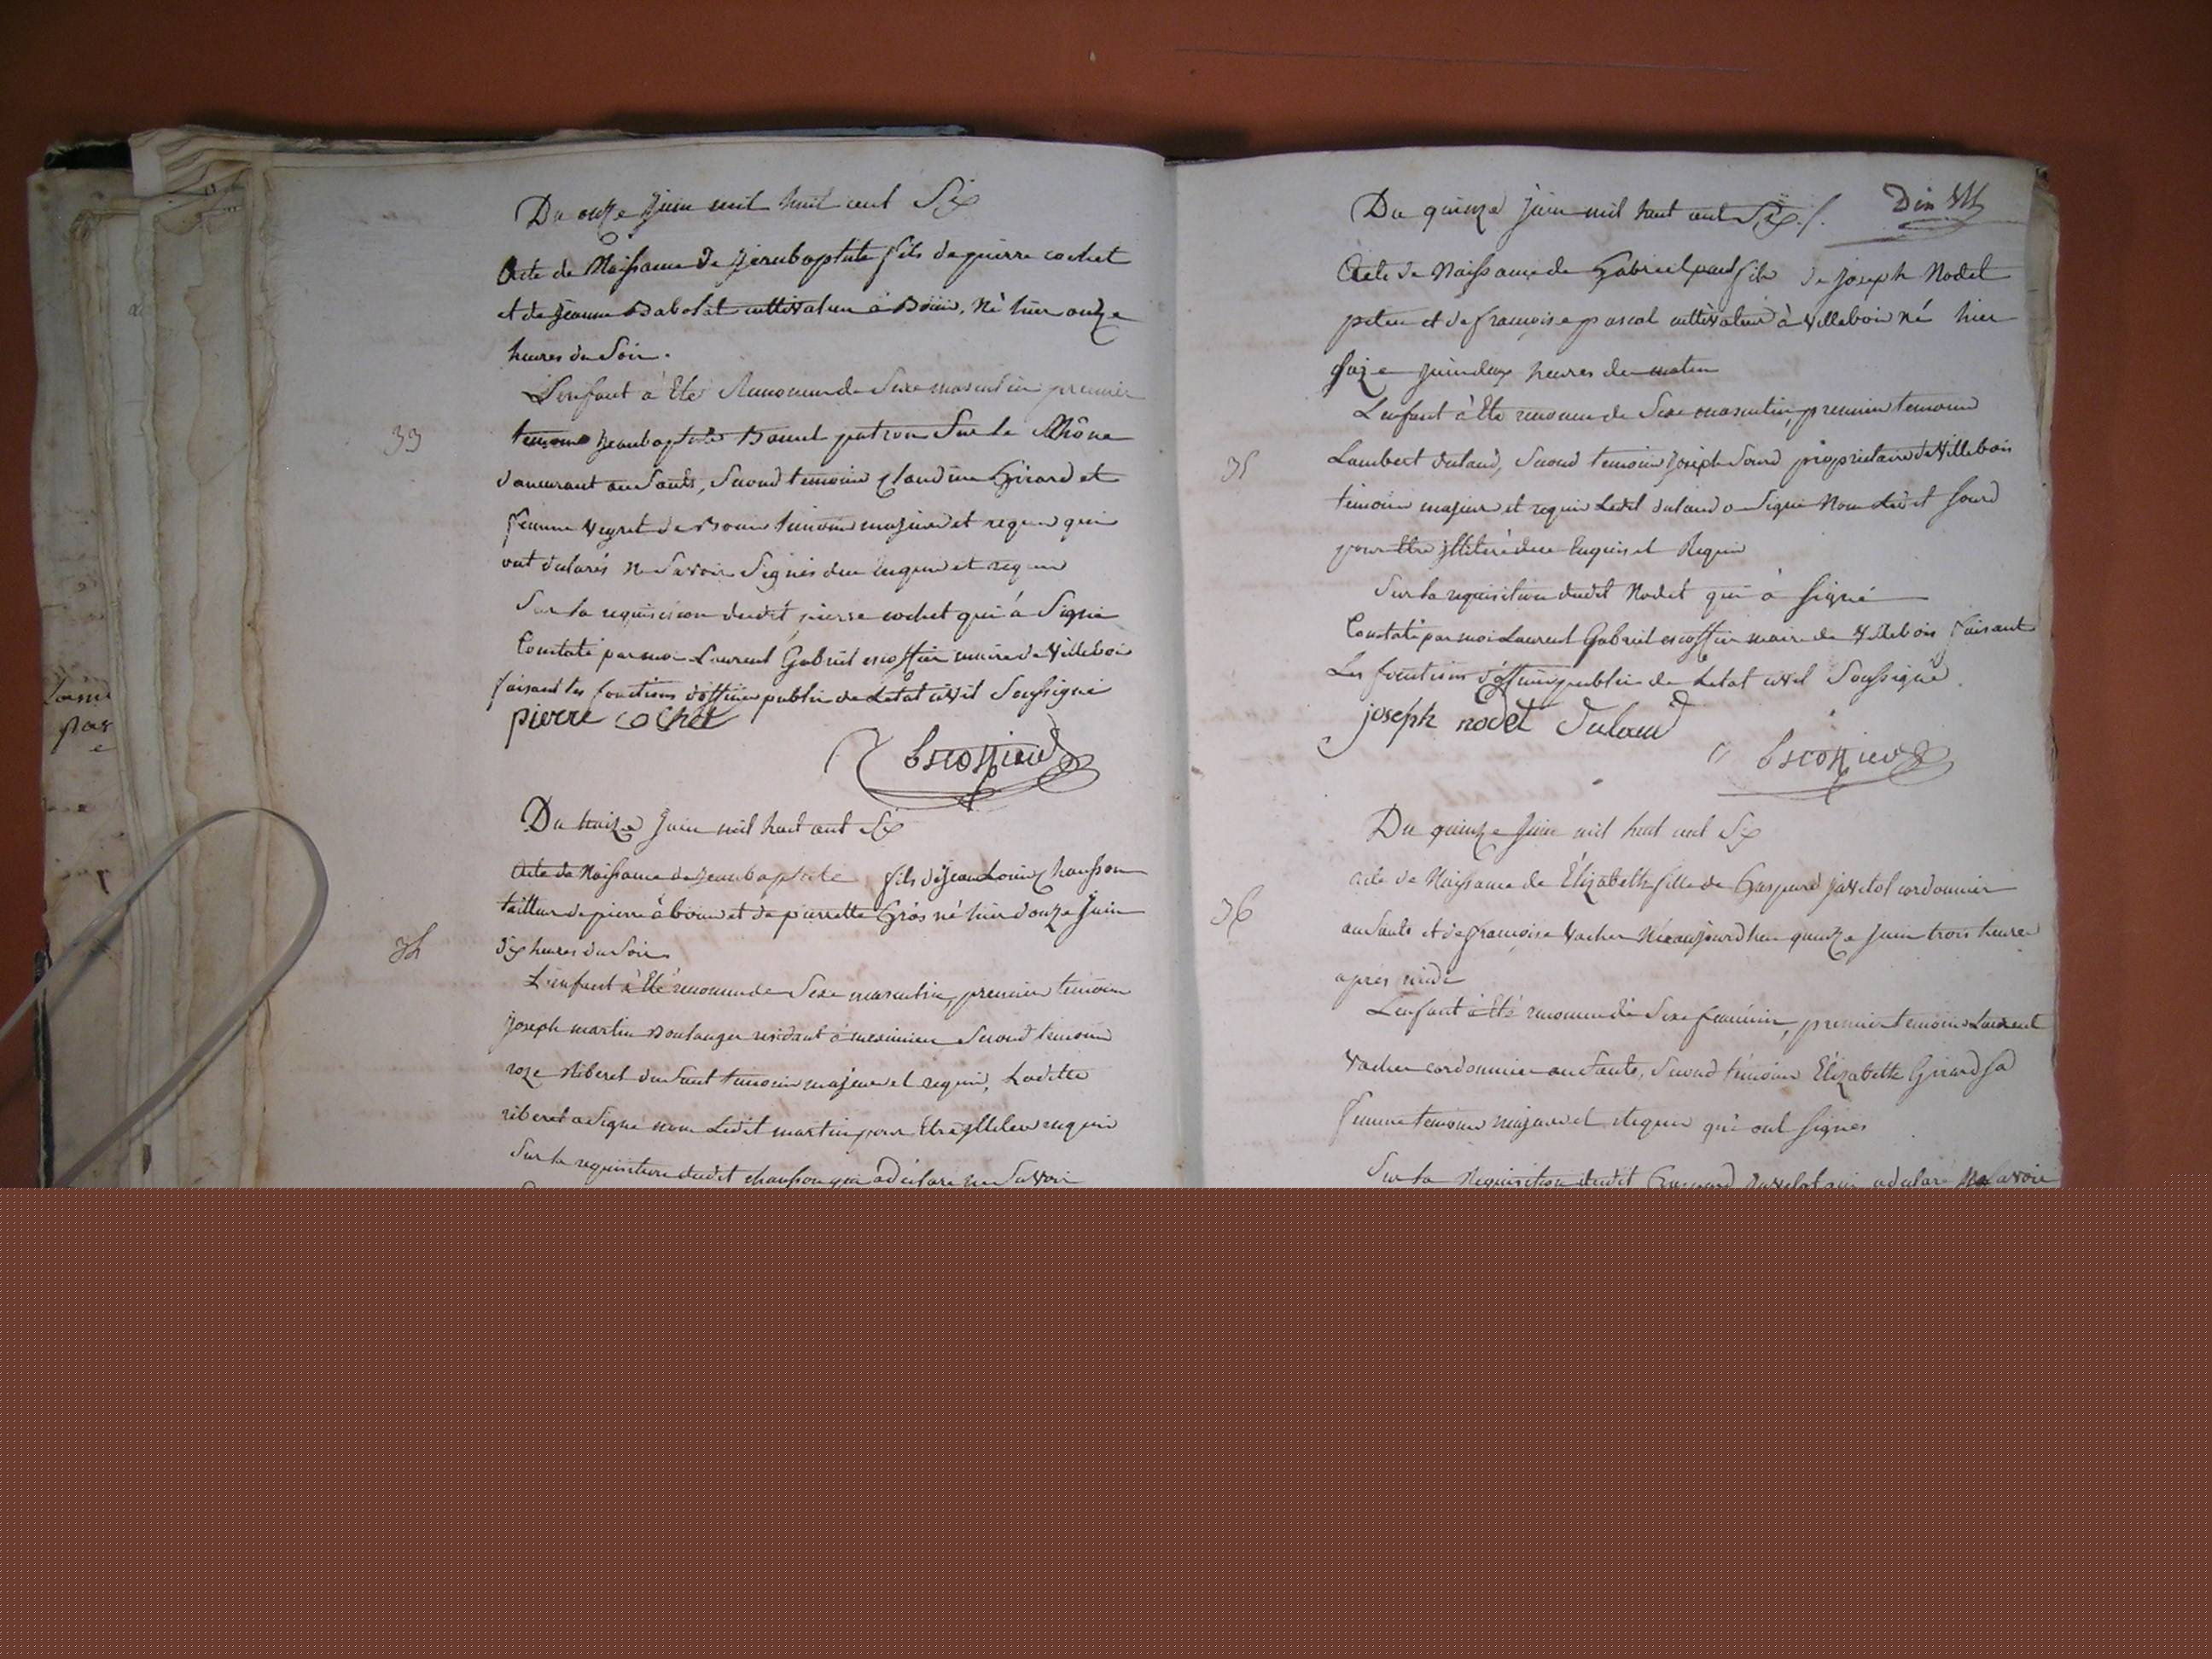 Du onze Juin mil huit cent Six
Acte de Naissance de Jeanbaptiste fils de pierre cochet
et de Jeanne Babolat cultivateur à Bouis, Né hier onze
heures du Soir.
L'enfant à Eté Reconnu de Sexe masculin premier
33
temoin Jeanbaptiste Bonnet patron Sur le Rhône
demeurant au Sault, Second temoin Claudine Girard et
femme Veyret de Bouis temoins majeurs et requis qui
ont déclarés ne Savoir Signés de ce enquis et requis
Sur la requisicion dudit pierre cochet qui à Signé
Constaté par moi Laurent Gabriel escoffier maire de Villebois
faisant les fonctions d'officier public de Letat civil Soussigné
pierre cochet
Escoffier
Du treize Juin mil huit cent Six
Acte de Naissance de Jeanbaptiste fils de Jean Louis Chausson
tailleur de pierre à bouis et de pierrette Gros né hier douze Juin
34
dix heures du Soir
L'enfant à Eté reconnu de Sexe masculin, premier temoin
Joseph martin Boulanger residant à meximieu Second temoin
roze Riberet du Sault temoins majeurs et requis, Laditte
riberet a Signé non Ledit martin pour Etre illiteré requis
Sur la requisition dudit chausson qui a déclaré ne Savoir
Du quinze Juin mil huit cent Six
Acte de Naissance de Gabriel paul fils de Joseph Nodet
et de françoise pascal cultivateur à Villebois né hier
Juin deux heures du matin
L'enfant à Eté reconnu de Sexe masculin, premier temoin
35
Lambert dulaud, Second temoin Joseph Sourd proprietaire de Villebois
temoins majeurs et requis Ledit dulaud a Signé Non Ledit Sourd
pour Etre illiteré de ce Enquis et Requis
Sur la requisition dudit Nodet qui à Signé
Constaté par moi Laurent Gabriel escoffier maire de Villebois faisant
Les fonctions d'officier public de Letat civil Soussigné
joseph nodet Dulaud
Escoffier
Du quinze Juin mil huit cent Six
acte de Naissance de Élizabeth fille de Gaspard Javelot cordonnier
36
au Sault et de françoise Vacher Née aujourd'hui quinze Juin trois heures
après midi
L'enfant à Eté reconnu de Sexe feminin, premier temoin Laurent
Vacher cordonnier au Sault, Second temoin Élizabeth Girard Sa
femme temoins majeurs et Requis qui ont Signés
Sur la Requisition dudit Gaspard Javelot qui a déclaré Ne Savoir